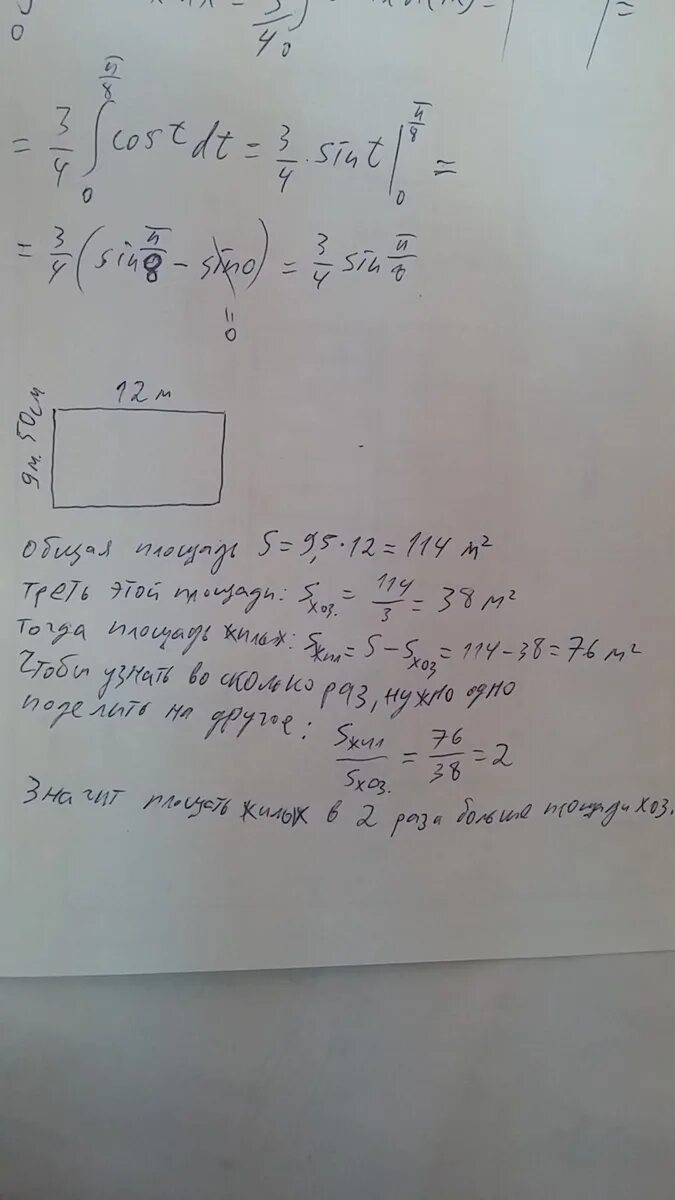 = 3/4 ∫₀^(π/8) cos t dt = 3/4 · sin t |₀^(π/8) =
= 3/4 (sin π/8 - sin 0) = 3/4 sin π/8
= 0
12 м
9 м. 50 см
Общая площадь S = 9,5 · 12 = 114 м²
Треть этой площади: Sхоз. = 114/3 = 38 м²
Тогда площадь жилых: Sжил = S - Sхоз = 114 - 38 = 76 м²
Чтобы узнать во сколько раз, нужно одно
поделить на другое: Sжил/Sхоз. = 76/38 = 2
Значит площать жилых в 2 раза больше площади хоз.